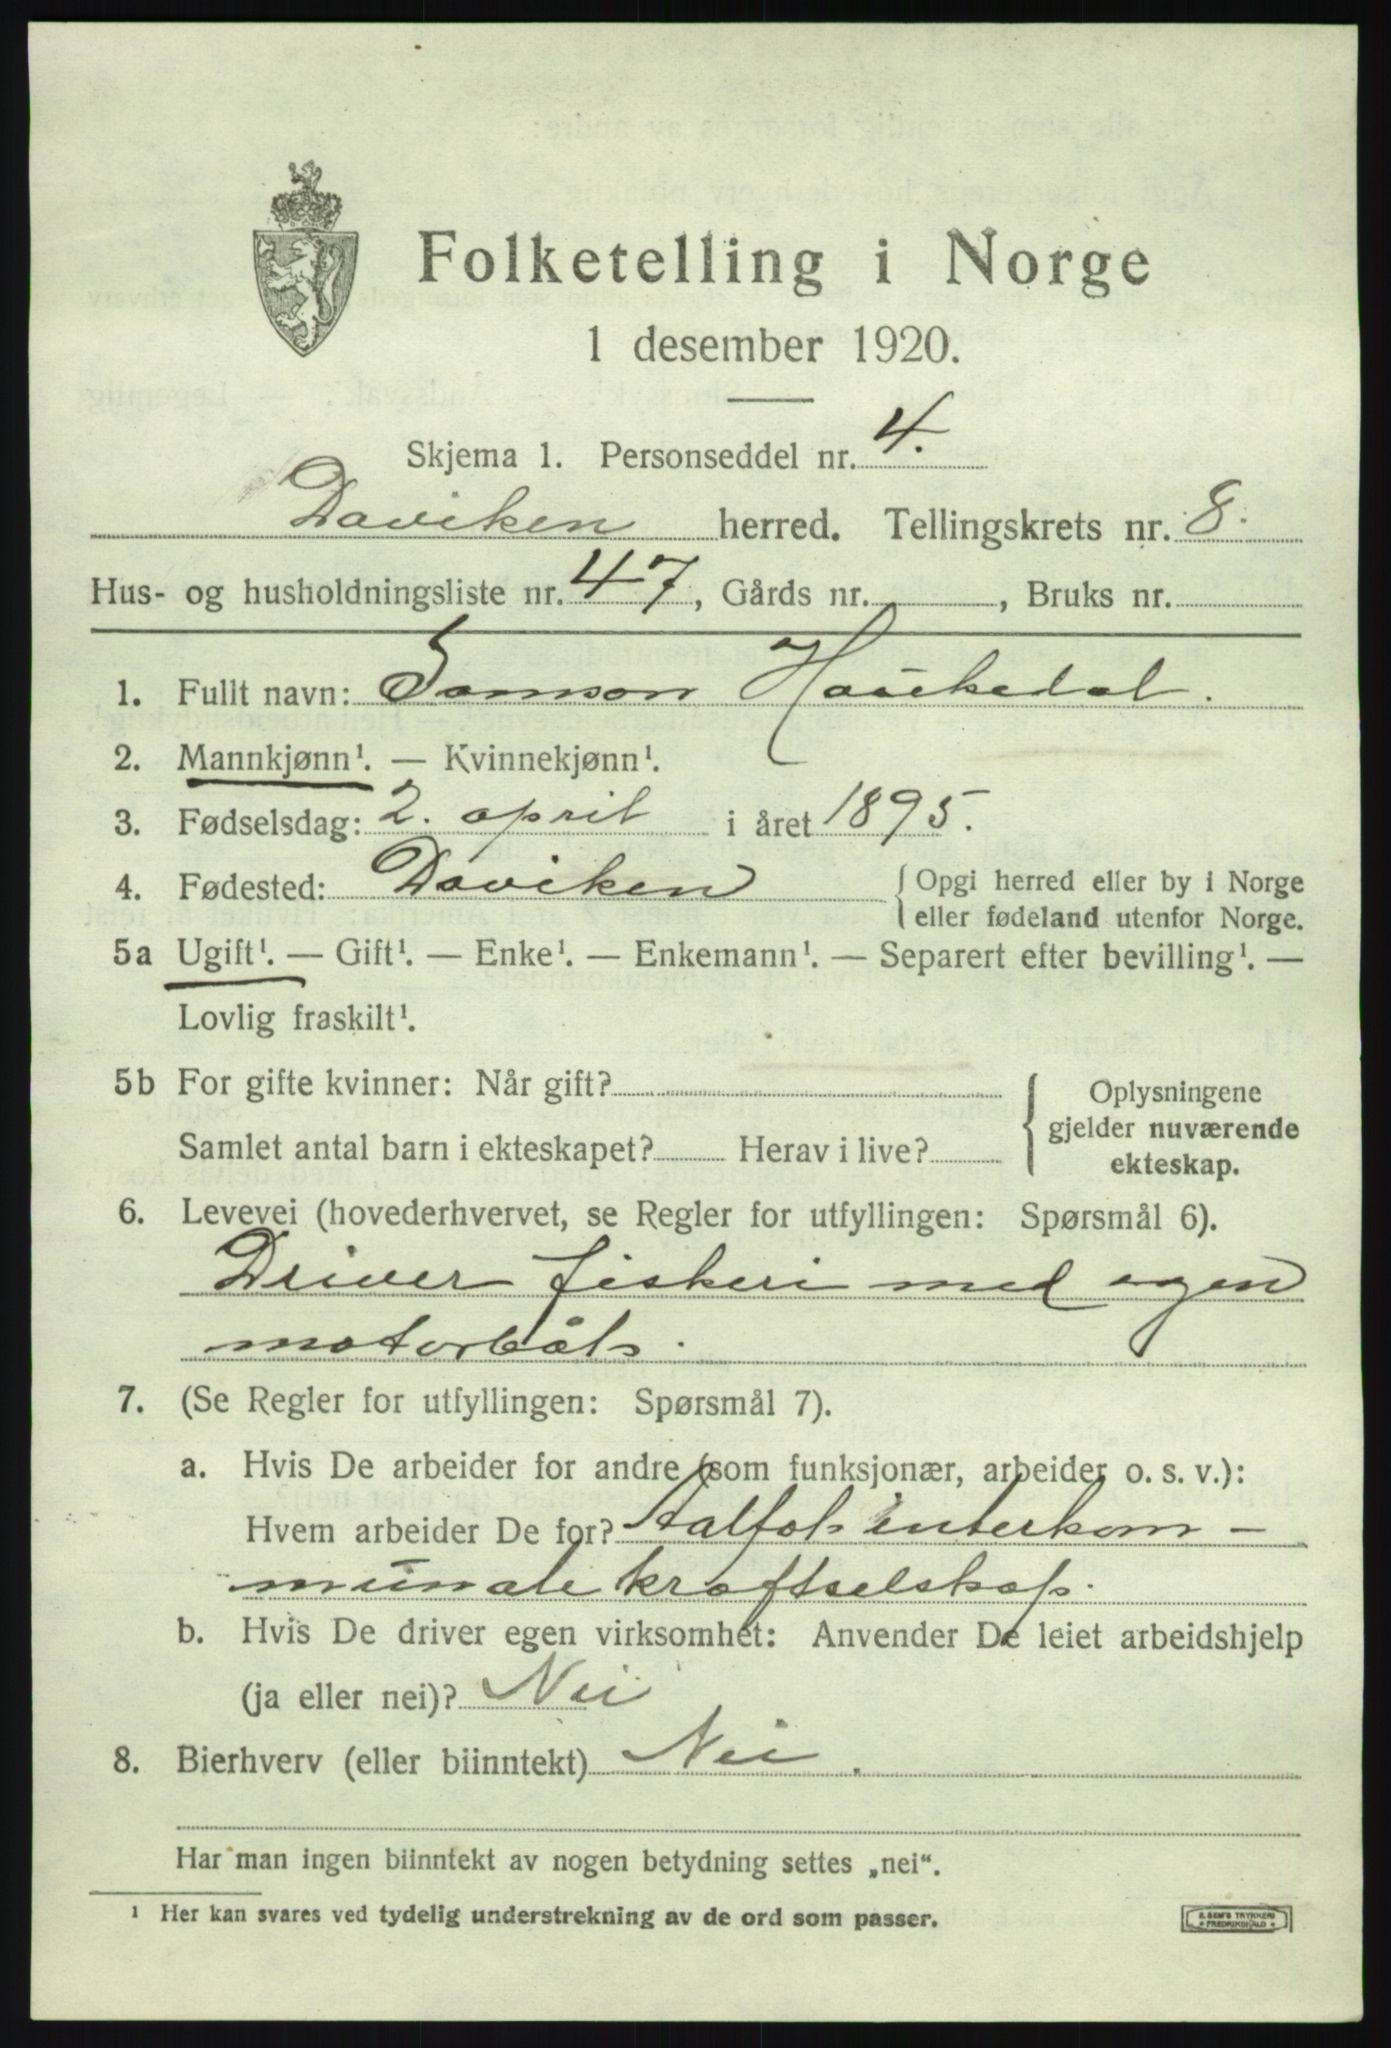 Folketelling i Norge
1 desember 1920.
Skjema 1. Personseddel nr. 4.
Daviken herred. Tellingskrets nr. 8.
Hus- og husholdningsliste nr. 47, Gårds nr. , Bruks nr.
1. Fullt navn: Samson Haukedal.
2. Mannkjønn¹. — Kvinnekjønn¹.
3. Fødselsdag: 2. april i året 1895.
4. Fødested: Daviken {Opgi herred eller by i Norge
eller fødeland utenfor Norge.
5a Ugift¹. — Gift¹. — Enke¹. — Enkemann¹. — Separert efter bevilling¹. —
Lovlig fraskilt¹.
5b For gifte kvinner: Når gift?
Samlet antal barn i ekteskapet? Herav i live?
{Oplysningene
gjelder nuværende
ekteskap.
6. Levevei (hovederhvervet, se Regler for utfyllingen: Spørsmål 6).
Driver fiskeri med egen
motorbåt.
7. (Se Regler for utfyllingen: Spørsmål 7).
a. Hvis De arbeider for andre (som funksjonær, arbeider o. s. v.):
Hvem arbeider De for? Aalfot interkom-
munale kraftselskap.
b. Hvis De driver egen virksomhet: Anvender De leiet arbeidshjelp
(ja eller nei)? Nei
8. Bierhverv (eller biinntekt) Nei.
Har man ingen biinntekt av nogen betydning settes „nei“.
¹ Her kan svares ved tydelig understrekning av de ord som passer.
E. SEM'S TRYKKERI
FREDRIKSHALD